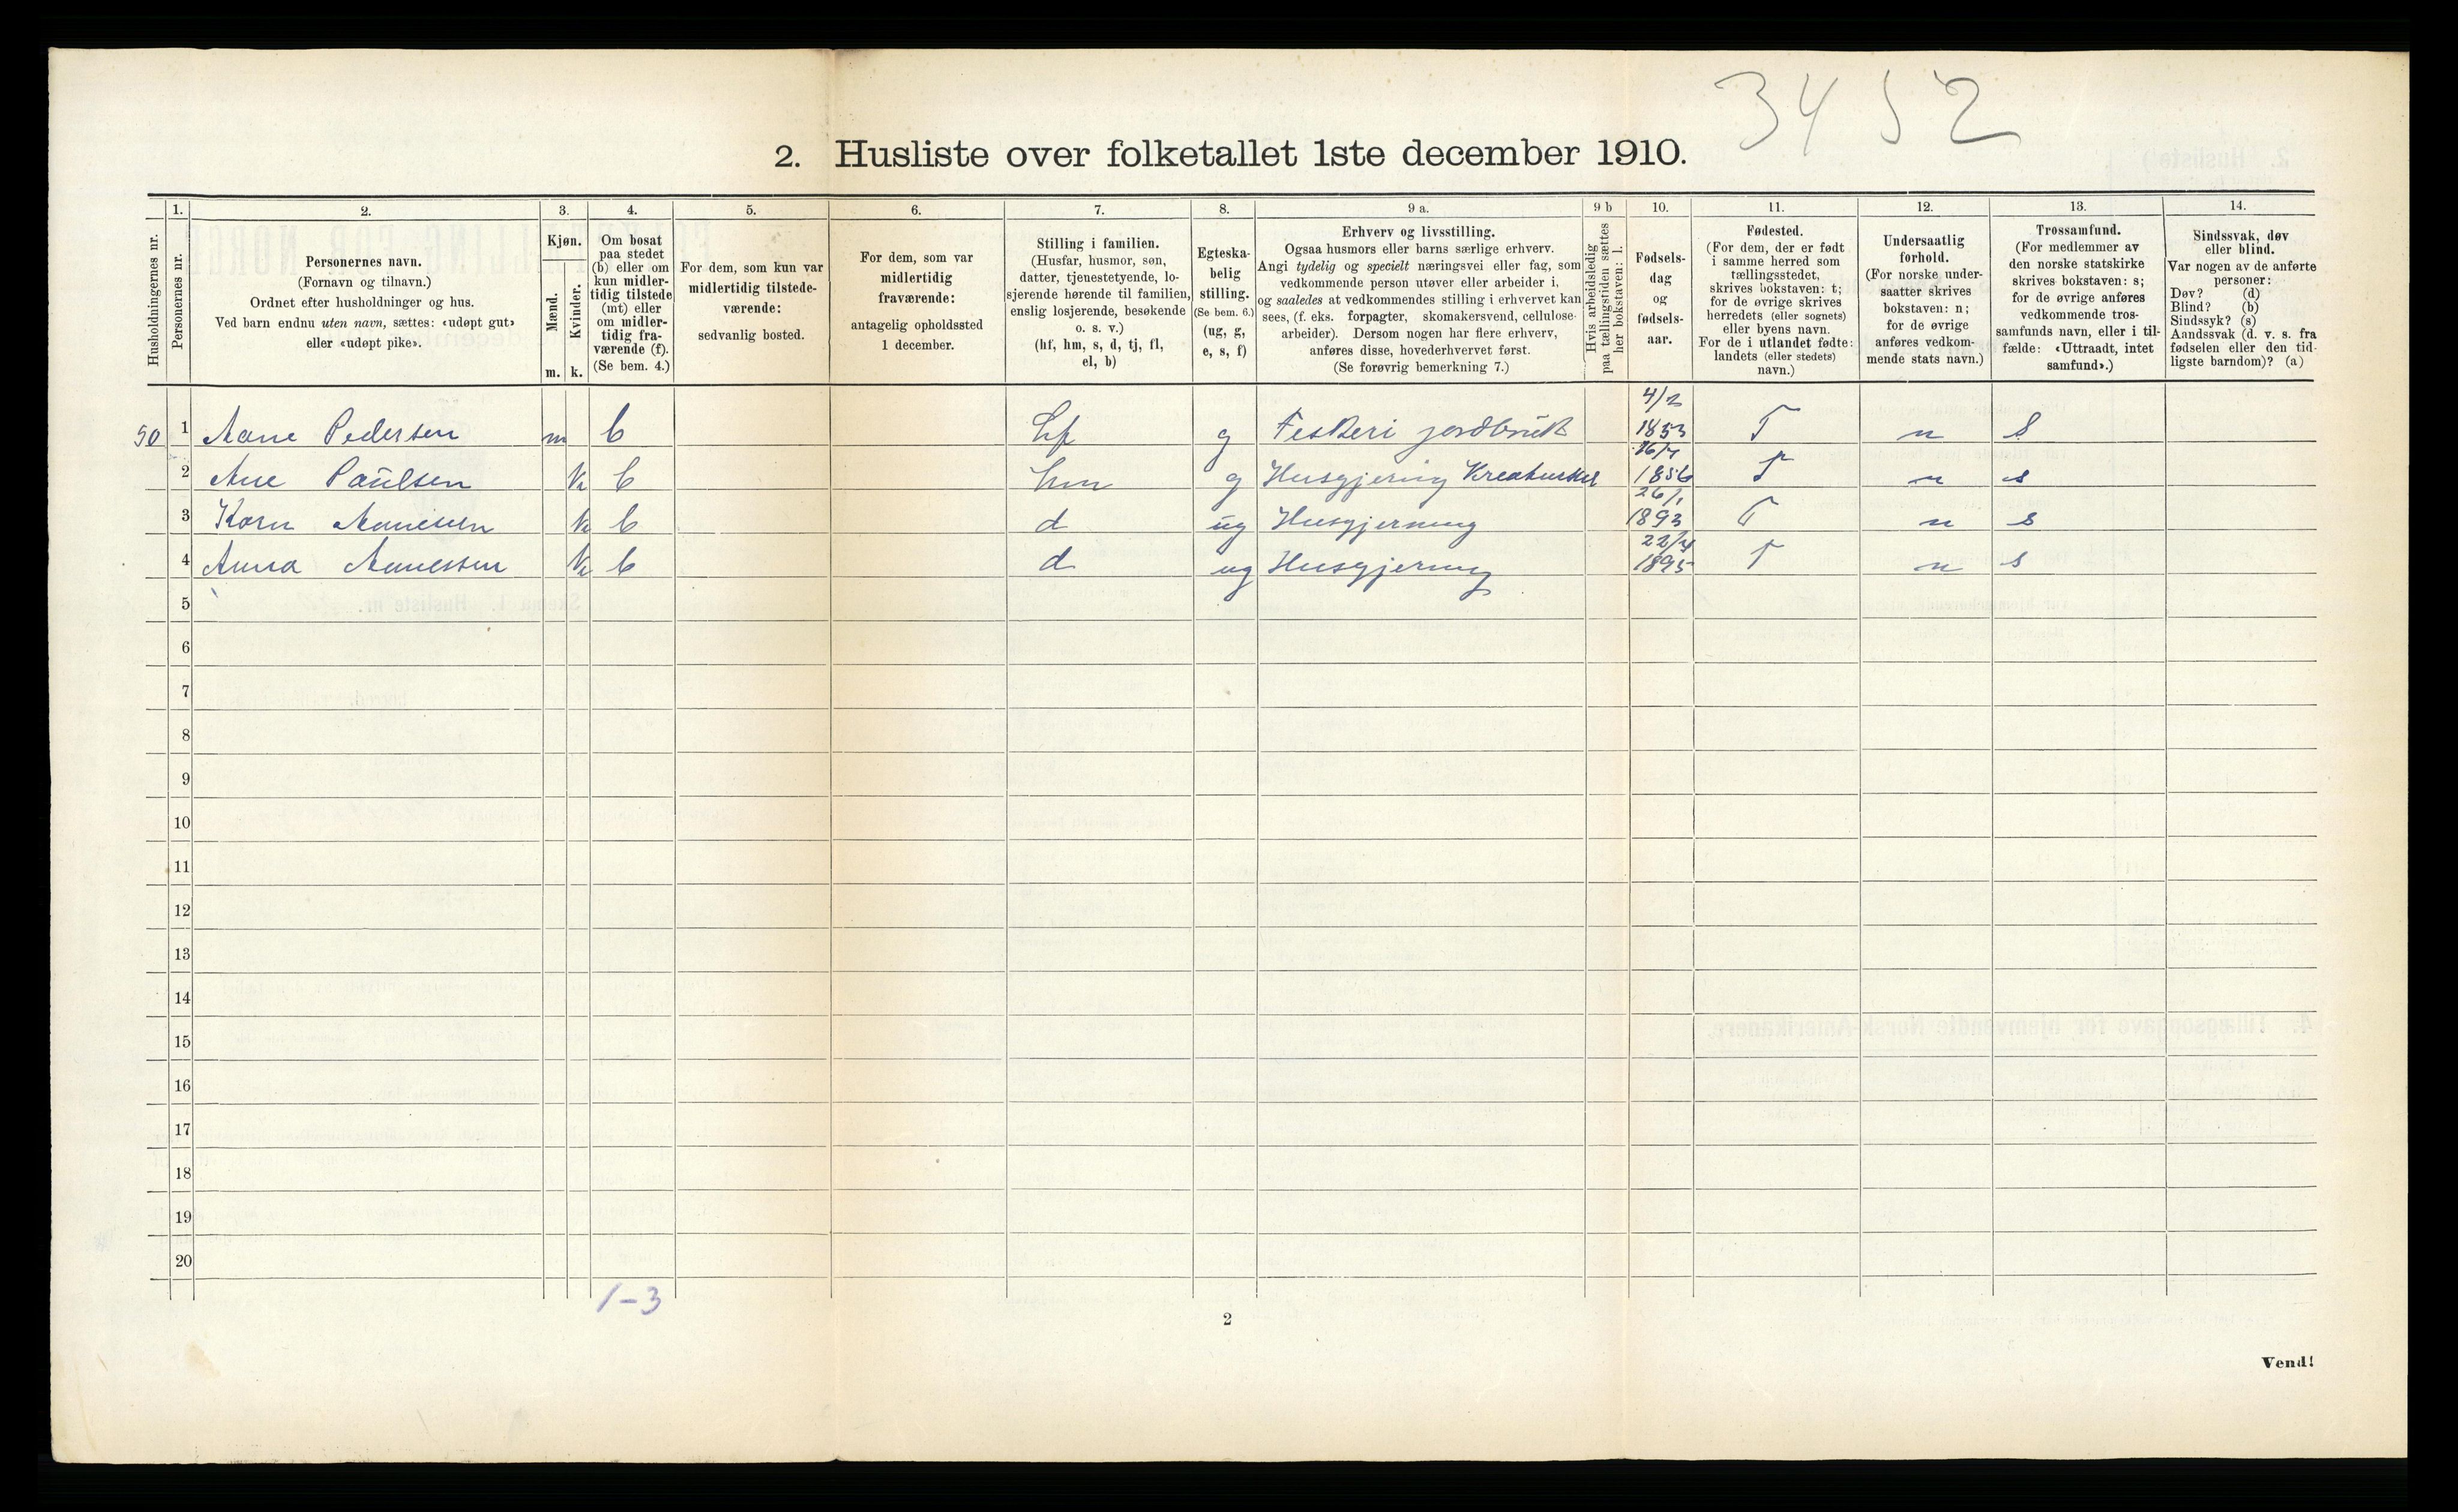 3452
2. Husliste over folketallet 1ste december 1910.
Husholdningernes nr.
1. Personernes nr.
2. Personernes navn.
(Fornavn og tilnavn.)
Ordnet efter husholdninger og hus.
Ved barn endnu uten navn, sættes: «udøpt gut»
eller «udøpt pike».
3. Kjøn.
Mænd. Kvinder.
m. k.
4. Om bosat
paa stedet
(b) eller om
kun midler-
tidig tilstede
(mt) eller
om midler-
tidig fra-
værende (f).
(Se bem. 4.)
5. For dem, som kun var
midlertidig tilstede-
værende:
sedvanlig bosted.
6. For dem, som var
midlertidig
fraværende:
antagelig opholdssted
1 december.
7. Stilling i familien.
(Husfar, husmor, søn,
datter, tjenestetyende, lo-
sjerende hørende til familien,
enslig losjerende, besøkende
o. s. v.)
(hf, hm, s, d, tj, fl,
el, b)
8. Egteska-
belig
stilling.
(Se bem. 6.)
(ug, g,
e, s, f)
9 a. Erhverv og livsstilling.
Ogsaa husmors eller barns særlige erhverv.
Angi tydelig og specielt næringsvei eller fag, som
vedkommende person utøver eller arbeider i,
og saaledes at vedkommendes stilling i erhvervet kan
sees, (f. eks. forpagter, skomakersvend, cellulose-
arbeider). Dersom nogen har flere erhverv,
anføres disse, hovederhvervet først.
(Se forøvrig bemerkning 7.)
9 b Hvis arbeidsledig
paa tællingstiden sættes
her bokstaven: l.
10. Fødsels-
dag
og
fødsels-
aar.
11. Fødested.
(For dem, der er født
i samme herred som
tællingsstedet,
skrives bokstaven: t;
for de øvrige skrives
herredets (eller sognets)
eller byens navn.
For de i utlandet fødte:
landets (eller stedets)
navn.)
12. Undersaatlig
forhold.
(For norske under-
saatter skrives
bokstaven: n;
for de øvrige
anføres vedkom-
mende stats navn.)
13. Trossamfund.
(For medlemmer av
den norske statskirke
skrives bokstaven: s;
for de øvrige anføres
vedkommende tros-
samfunds navn, eller i til-
fælde: «Uttraadt, intet
samfund».)
14. Sindssvak, døv
eller blind.
Var nogen av de anførte
personer:
Døv? (d)
Blind? (b)
Sindssyk? (s)
Aandssvak (d. v. s. fra
fødselen eller den tid-
ligste barndom)? (a)
50 1 Aane Pedersen m b hf g Feskeri jordbruk 4/2 1853 T n S
2 Ane Paulsen k b hm g Husgjering 16/7 1856 T n s
3 Karn k b d ug Husgjerning 26/1 1893 T n s
4 Anna Aanessen k b d ug Husgjerning 22/4 1895 T n s
5
6
7
8
9
10
11
12
13
14
15
16
17
18
19
20
1-3
2
Vend!